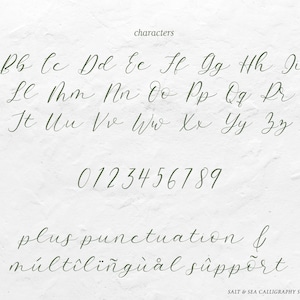 characters
Bb Cc Dd Ee Ff Gg Hh
Ll Mm Nn Oo Pp Qq Rr
Tt Uu Vv Ww Xx Yy Zz
0123456789
plus punctuation &
múltîlïñgùàl sûppõrt
SALT & SEA CALLIGRAPHY